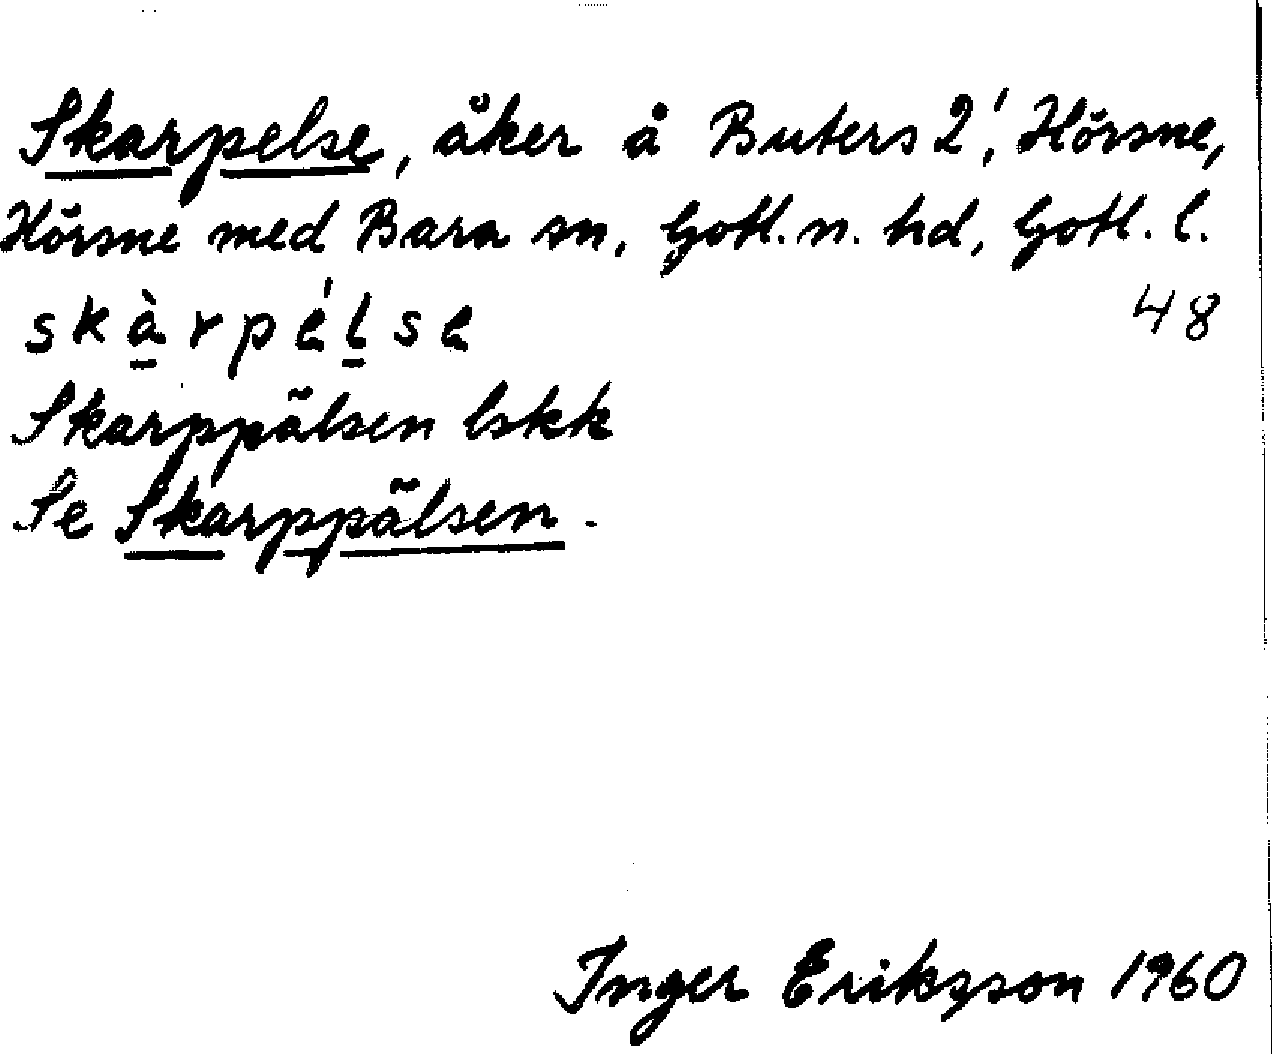 Skarpelse, åker å Buters 2', Hörsne,
Hörsne med Bara sn, Gotl. n. hd, Gotl. l.
skàrpélse
48
Skarppälsen lskk
Se Skarppälsen.
Inger Eriksson 1960